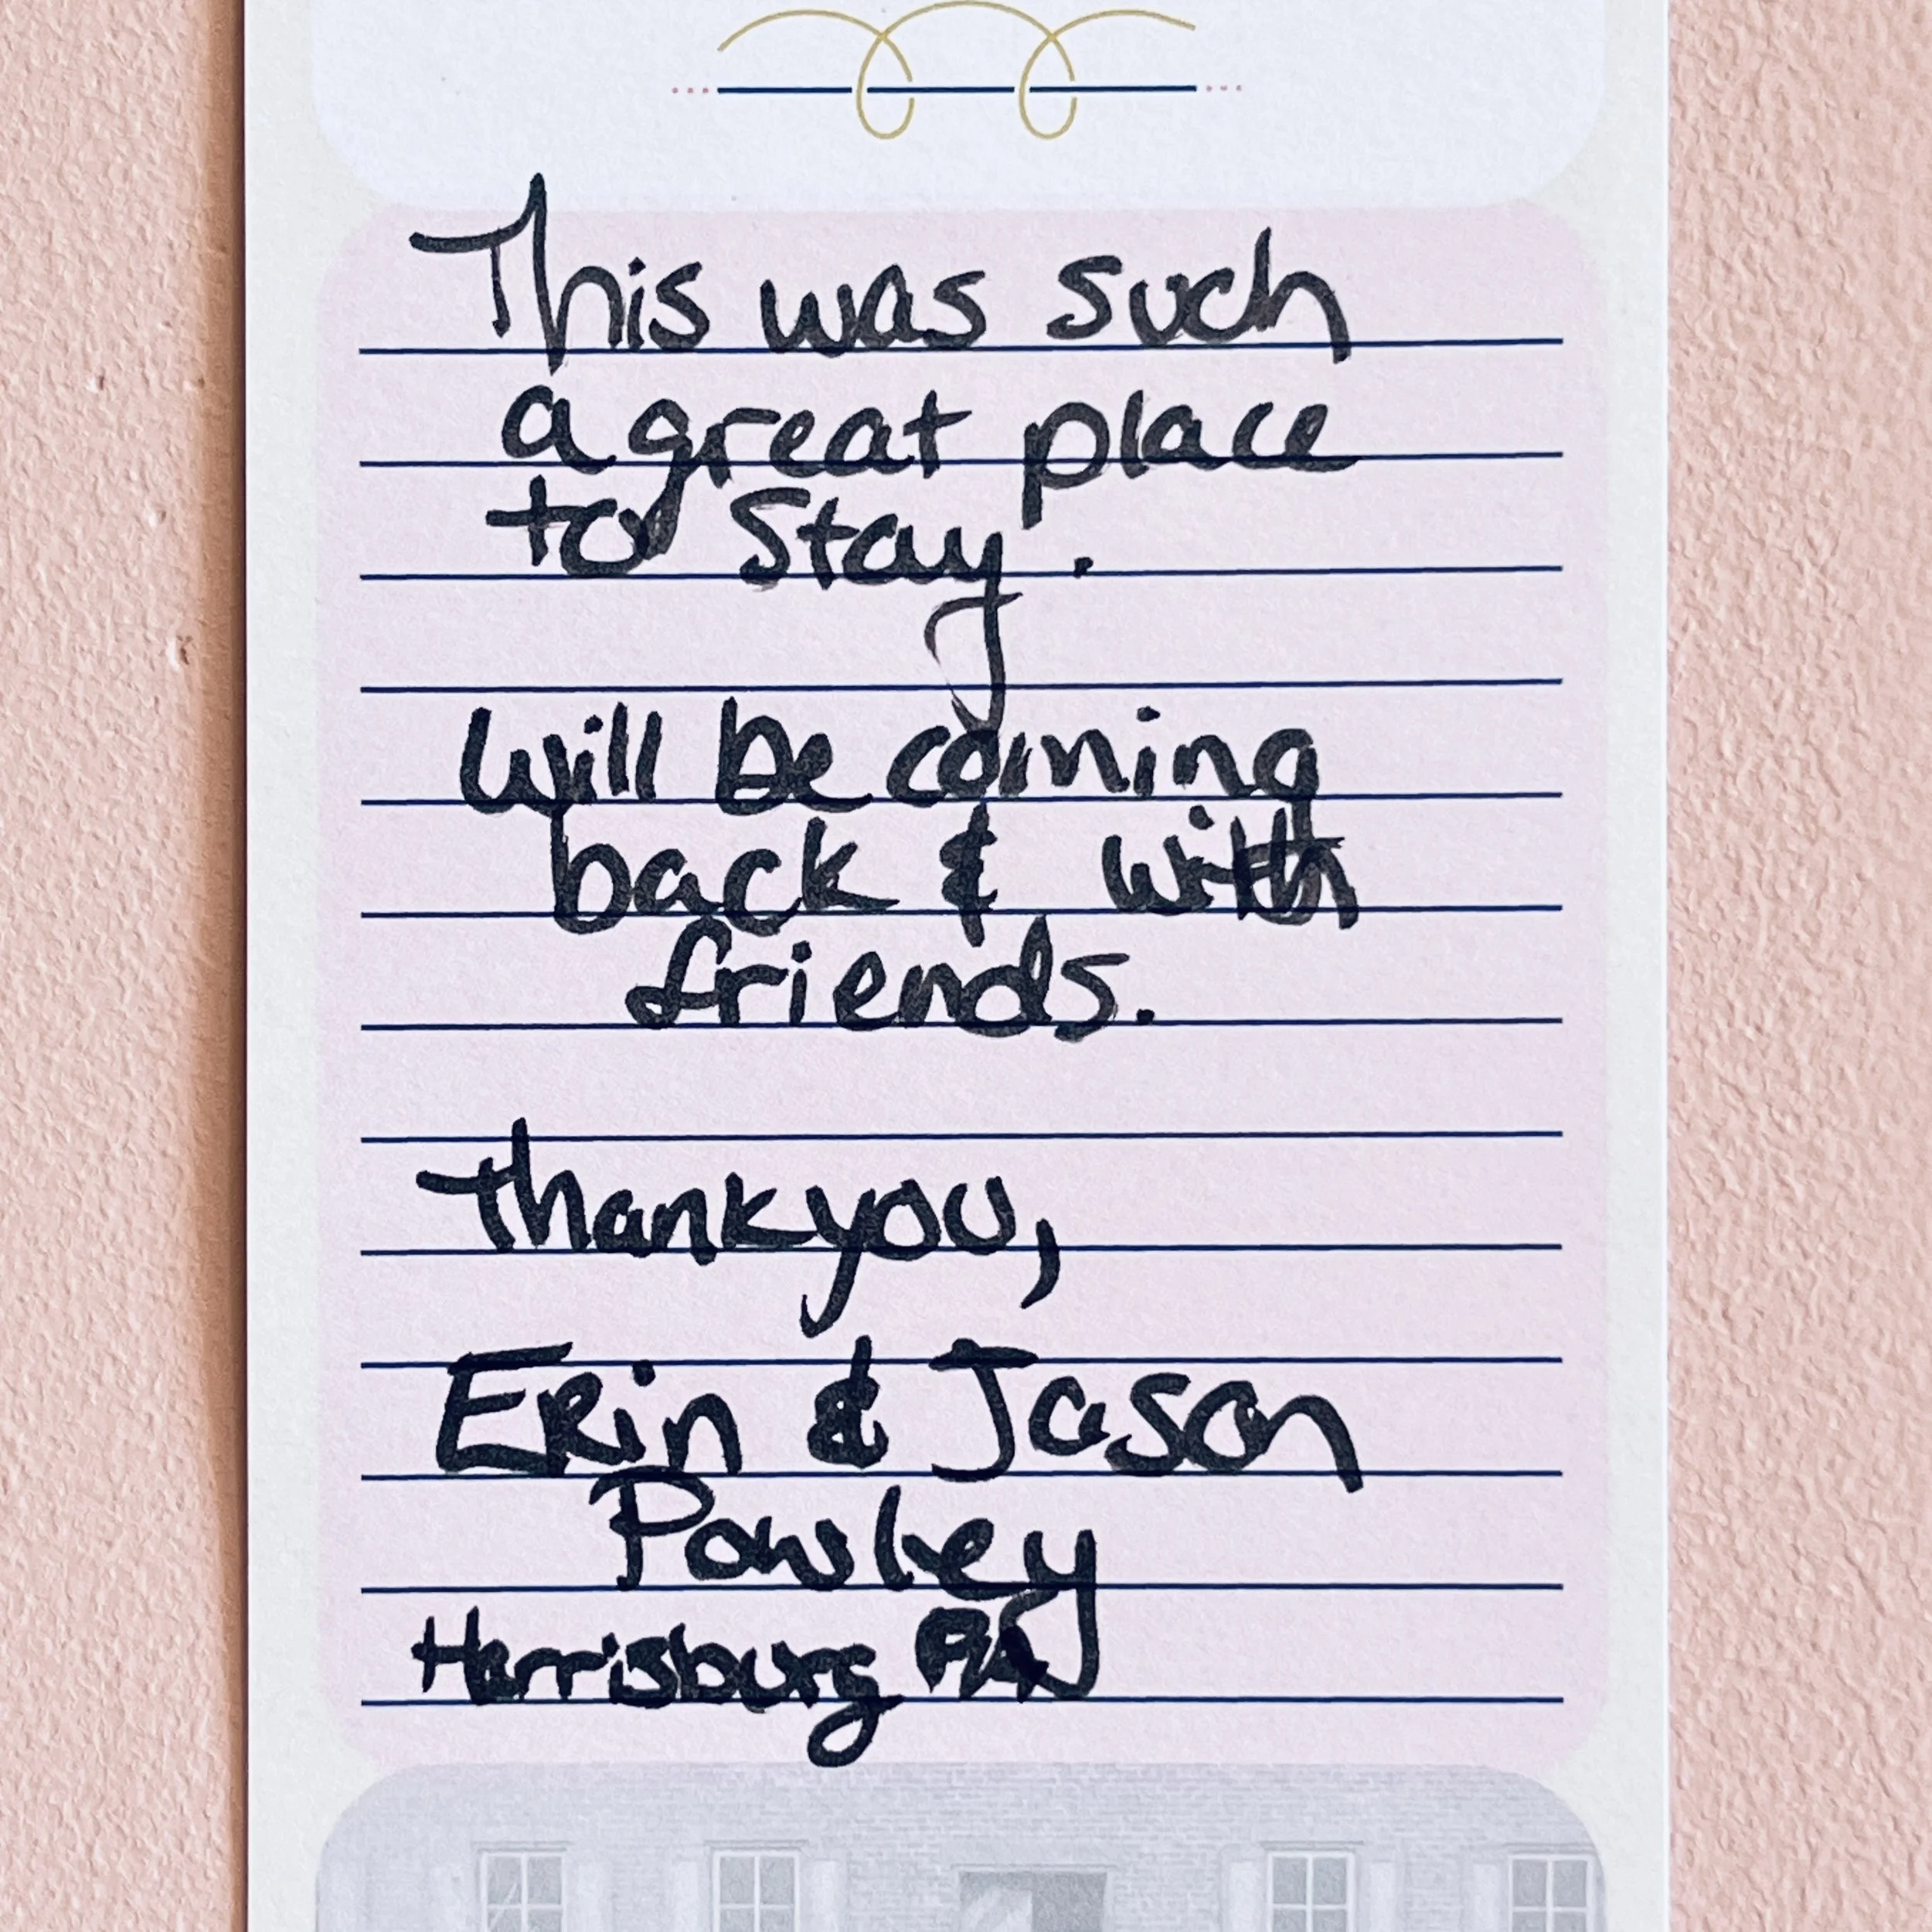 This was such
a great place
to Stay.
Will be coming
back & with
friends.
thankyou,
Erin & Jason
Powley
Harrisburg PA